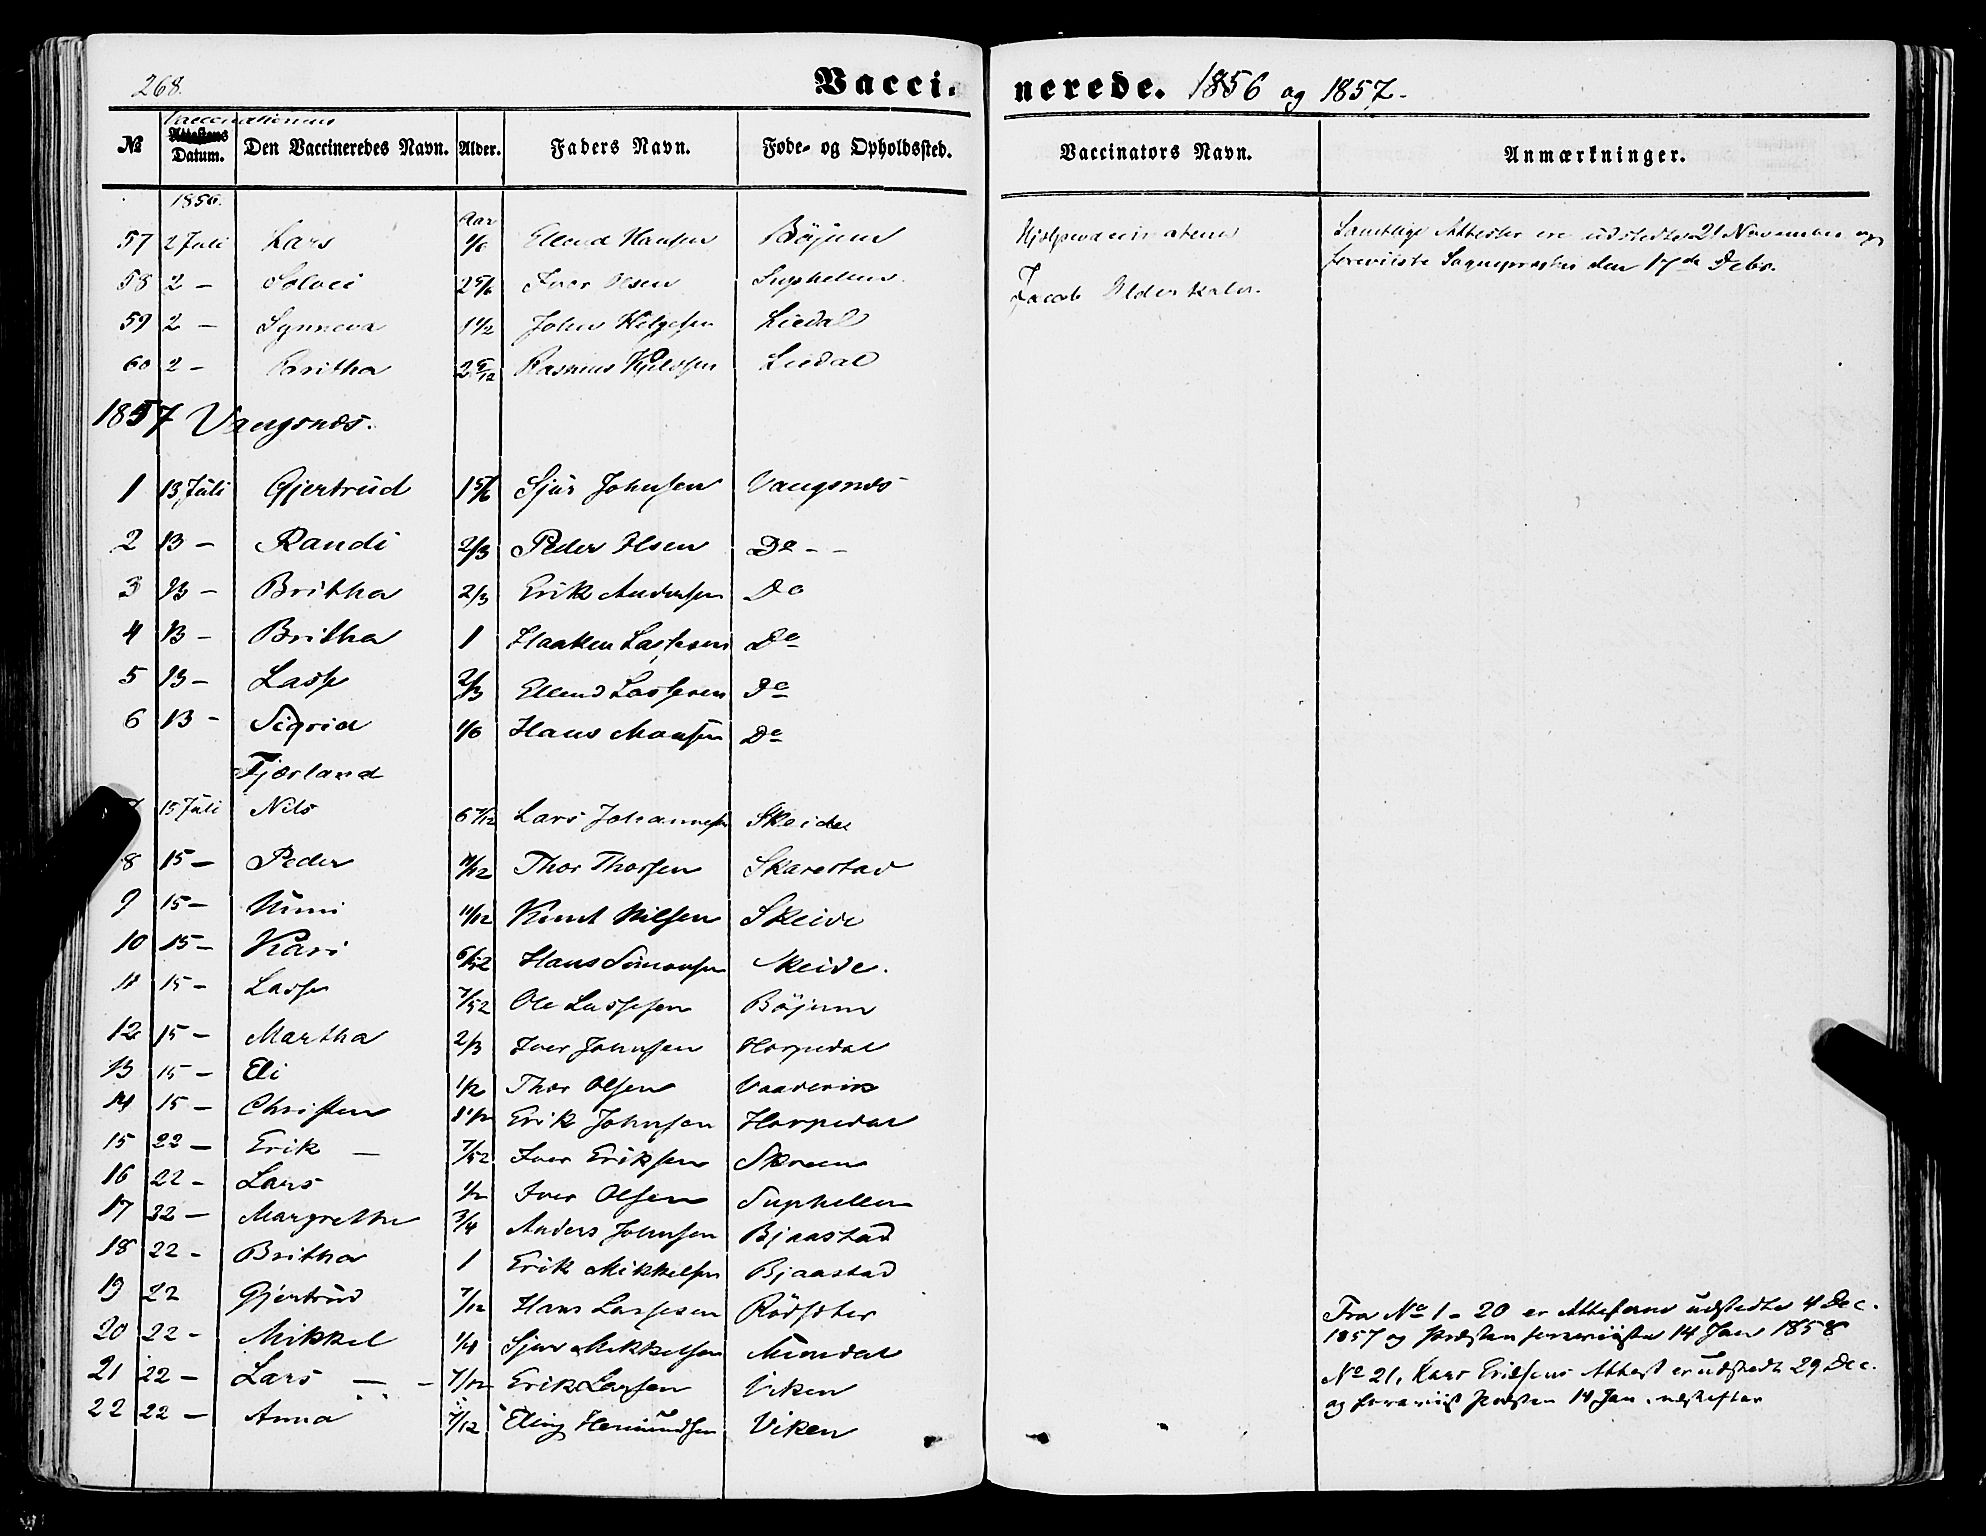 268.
Vaccinerede. 1856 og 1857.
Vaccinationens
№ Attestens Datum. Den Vaccineredes Navn. Alder. Faders Navn. Føde- og Opholdssted. Vaccinators Navn. Anmærkninger.
1856. Aar
57 2 Juli Lars 1/6 Ellend Hansen Böjum Hjelpevaccinateur Samtlige Attester ere udstedte 21 November og
58 2 — Solvei 2 5/6 Iver Olsen Suphellen Jacob foreviste Sognepræsten den 17de Debr.
59 2 — Synneva 1 1/2 John Helgesen Liedal
60 2 — Britha Rasmus Liedal
1857 Vangsnæs.
1 13 Juli Gjertrud 1 5/6 Sjur Johnsen Vangsnæs
2 13 — Randi 2/3 Peder Olsen Do - -
3 13 — Britha 2/3 Erik Andersen Do
4 13 — Britha 1 Haaken Lassesen Do
5 13 — Lasse 2/3 Ellend Lassesen Do
6 13 — Sigrid 1/6 Hans Monsen Do
Fjærland
15 Juli Nils 6 7/12 Lars Johannesen Skeide
8 15 — Peder 11/12 Thor Thorsen Skarestad
9 15 — Unni 11/12 Knut Nilsen Skeide
10 15 — Kari 6/52 Hans Simonsen Skeide.
11 15 — Lasse 7/52 Ole Lassesen Böjum
12 15 — Martha 2/3 Iver Johnsen Horpedal
13 15 — Eli 1/2 Thor Olsen
14 15 — Christen Erik Johnsen Horpedal
15 22 — Erik — 7/52 Iver Eriksen Skreen
16 22 — Lars 1/2 Iver Olsen Suphellen
17 22 — Margrethe 3/4 Anders Johnsen Bjaastad
18 22 — Britha 1 Erik Mikkelsen Bjaastad
19 22 Gjertrud 7/12 Hans Lassesen Rödseter Fra No 1 - 20 er Attesterne udstedte 4 Dec.
20 22 — Mikkel 1/4 Sjur Mikkelsen Mundal 1857 og Præsten foreviiste 14 Jan 1858
21 22 — Lars — - 7/12 Erik Larsen Viken No 21, Lars Eriksens Attest er udstedt 29 Dec.
22 22 — Anna 7/12 Elling Hermundsen Viken og foreviist Præsten 14 Jan.